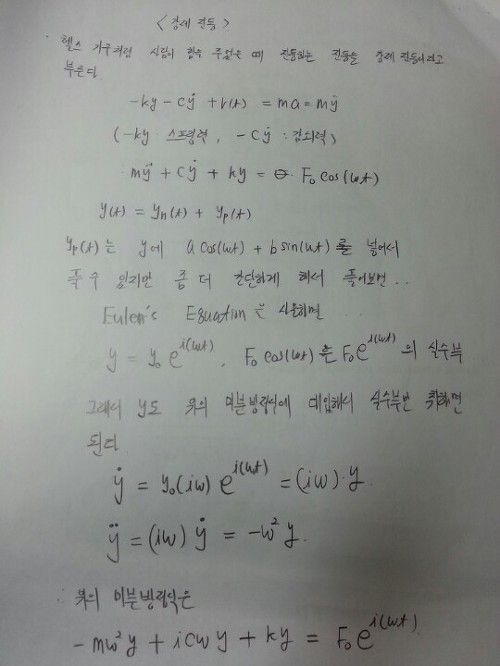 <강제 진동>
헬스 기구처럼 사람이 힘을 주었을 때 진동하는 진동을 강제 진동이라고
부른다.
-ky - cẏ + r(t) = ma = mÿ
(-ky 스프링력, -cẏ : 감쇠력)
mÿ + cẏ + ky = F₀cos(ωt)
y(t) = yₕ(t) + yₚ(t)
yₚ(t)는 y에 a cos(ωt) + b sin(ωt) 를 넣어서
풀 수 있지만 좀 더 간단하게 해서 풀어보면..
Euler's Equation을 사용하면..
y = y₀e^{i(ωt)}, F₀cos(ωt)은 F₀e^{i(ωt)}의 실수부
그래서 y도 위의 미분방정식에 대입해서 실수부만 취하면
된다
ẏ = y₀(iω)e^{i(ωt)} = (iω)·y
ÿ = (iω)ẏ = -ω²y.
위의 미분방정식은
-mω²y + icωy + ky = F₀e^{i(ωt)}